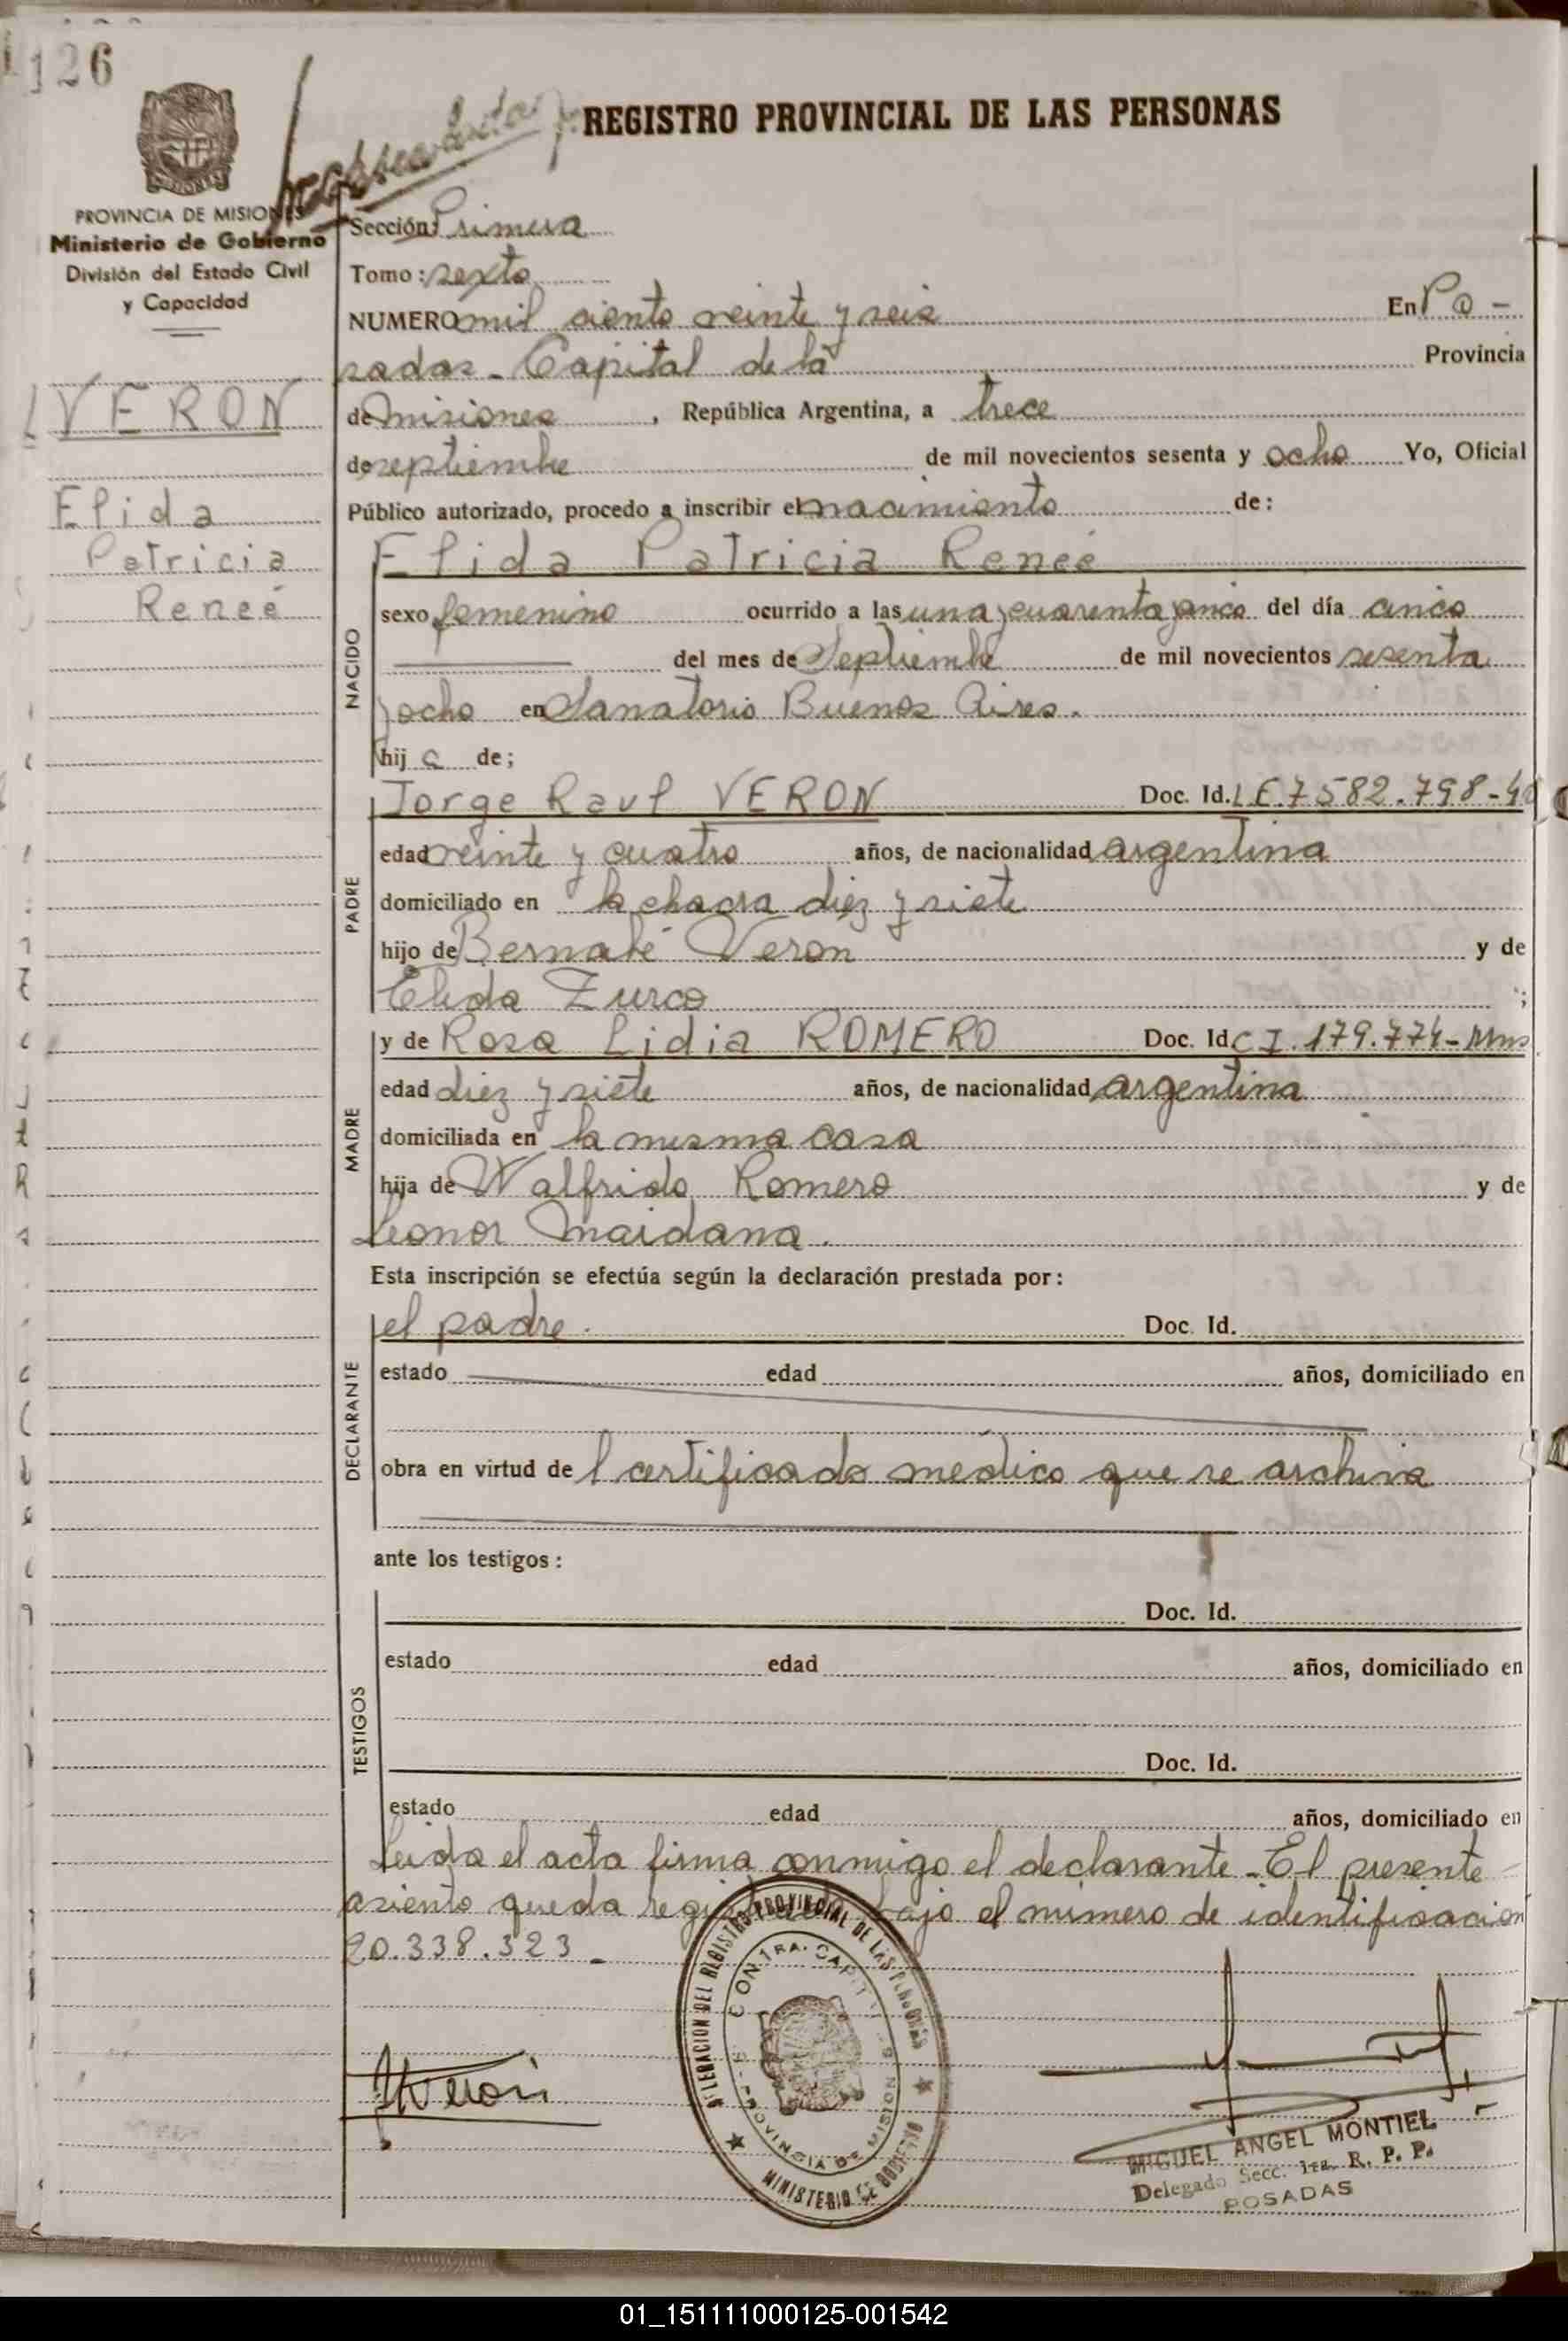 1126
REGISTRO PROVINCIAL DE LAS PERSONAS
PROVINCIA DE MISIONES
Ministerio de Gobierno
División del Estado Civil
y Capacidad
VERON
Elida
Patricia
Reneé
Sección: Primera
Tomo: sexto
NUMERO mil ciento veinte y seis En Po-
sadas - Capital de la Provincia
de Misiones, República Argentina, a trece
de septiembre de mil novecientos sesenta y ocho Yo, Oficial
Público autorizado, procedo a inscribir el nacimiento de:
Elida Patricia Reneé
NACIDO
sexo femenino ocurrido a las una y cuarenta y cinco del día cinco
del mes de Septiembre de mil novecientos sesenta
y ocho en Sanatorio Buenos Aires.
hij a de;
PADRE
Jorge Raul VERON Doc. Id. L E. 7582.798-
edad veinte y cuatro años, de nacionalidad argentina
domiciliado en la chacra diez y siete
hijo de Bernabé Veron y de
Elida Zurco ;
MADRE
y de Rosa Lidia ROMERO Doc. Id. C I. 179.774-Mns
edad diez y siete años, de nacionalidad argentina
domiciliada en la misma casa
hija de Walfrido Romero y de
Leonor Maidana.
Esta inscripción se efectúa según la declaración prestada por:
DECLARANTE
el padre. Doc. Id.
estado edad años, domiciliado en
obra en virtud de l certificado médico que se archiva
ante los testigos:
TESTIGOS
Doc. Id.
estado edad años, domiciliado en
Doc. Id.
estado edad años, domiciliado en
Leida el acta firma conmigo el declarante - El presente
asiento queda registrado bajo el número de identificación
20.338.323 -
DELEGACION DEL REGISTRO PROVINCIAL DE LAS PERSONAS
MINISTERIO DE GOBIERNO
PROVINCIA DE MISIONES
JRVeron
MIGUEL ANGEL MONTIEL
Delegado Secc. 1ra. R. P. P.
POSADAS
01_151111000125-001542